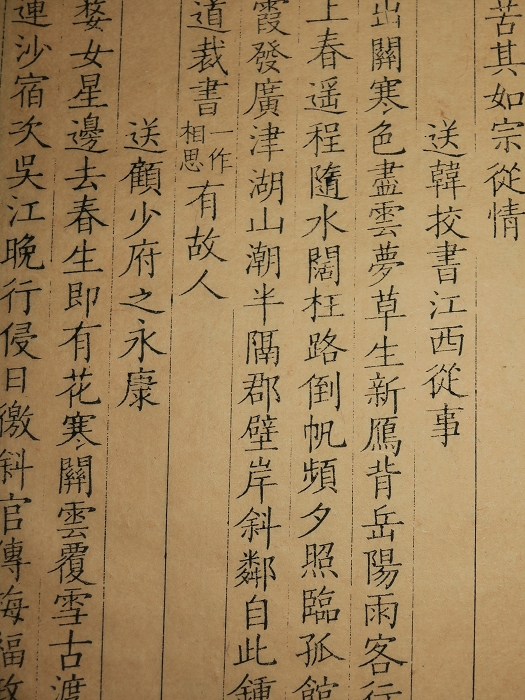 苦其如宗從情
送韓挍書江西從事
出關寒色盡雲夢草生新鴈背岳陽雨客行
上春遥程隨水闊枉路倒帆頻夕照臨孤館
霞發廣津湖山潮半隔郡壁岸斜鄰自此鍾
道裁書一作相思有故人
送顧少府之永康
婺女星邊去春生即有花寒關雲覆雪古渡
連沙宿次吳江晚行侵日徼斜官傳梅福政